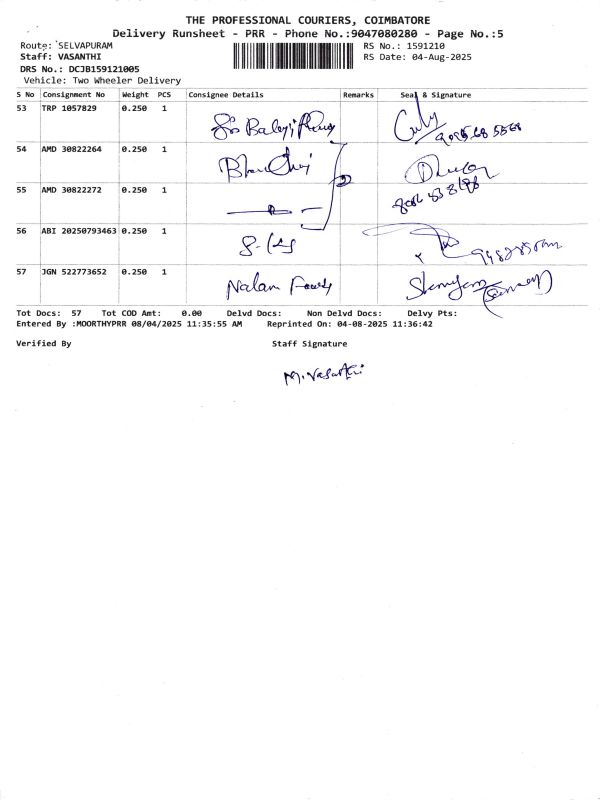 THE PROFESSIONAL COURIERS, COIMBATORE
Delivery Runsheet - PRR - Phone No.:9047080280 - Page No.:5
Route: SELVAPURAM
RS No.: 1591210
Staff: VASANTHI
RS Date: 04-Aug-2025
DRS No.: DCJB159121005
Vehicle: Two Wheeler Delivery
S No Consignment No Weight PCS Consignee Details Remarks Seal & Signature
53 TRP 1057829 0.250 1
Balaji
54 AMD 30822264 0.250 1
55 AMD 30822272 0.250 1
56 ABI 20250793463 0.250 1
57 JGN 522773652 0.250 1 Nalam Foods
Tot Docs: 57 Tot COD Amt: 0.00 Delvd Docs: Non Delvd Docs: Delvy Pts:
Entered By :MOORTHYPRR 08/04/2025 11:35:55 AM Reprinted On: 04-08-2025 11:36:42
Verified By Staff Signature
M. Vasanthi